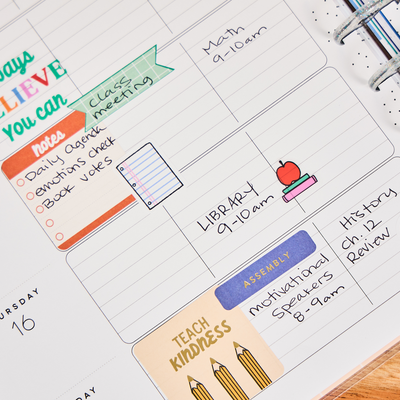 Math
9-10am
ays
ELIEVE
You can
Class
meeting
notes
Daily agenda
emotions check
Book votes
LIBRARY
9-10am
History
Ch. 12
Review
ASSEMBLY
motivational
Speakers
8-9am
TEACH
KINDNESS
URSDAY
16
DAY